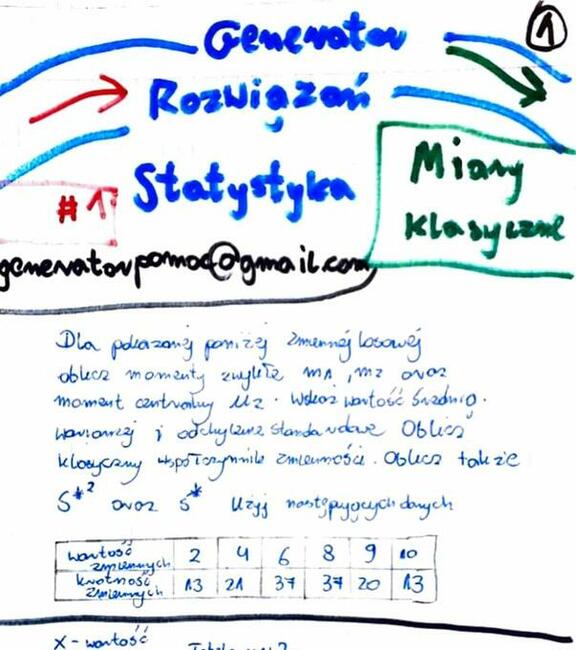 1
Generator
Rozwiązań
Statystyka
#1
Miary
klasyczne
generatorpomoc@gmail.com
Dla pokazanej poniżej zmiennej losowej
oblicz momenty zwykłe m1, m2 oraz
moment centralny M2. Wskaż wartość średnią.
wariancję i odchylenie standardowe Oblicz
klasyczny współczynnik zmienności. Oblicz także
S*² oraz S* Użyj następujących danych
wartość zmiennych 2 4 6 8 9 10
krotność zmiennych 13 21 37 37 20 13
X - wartość